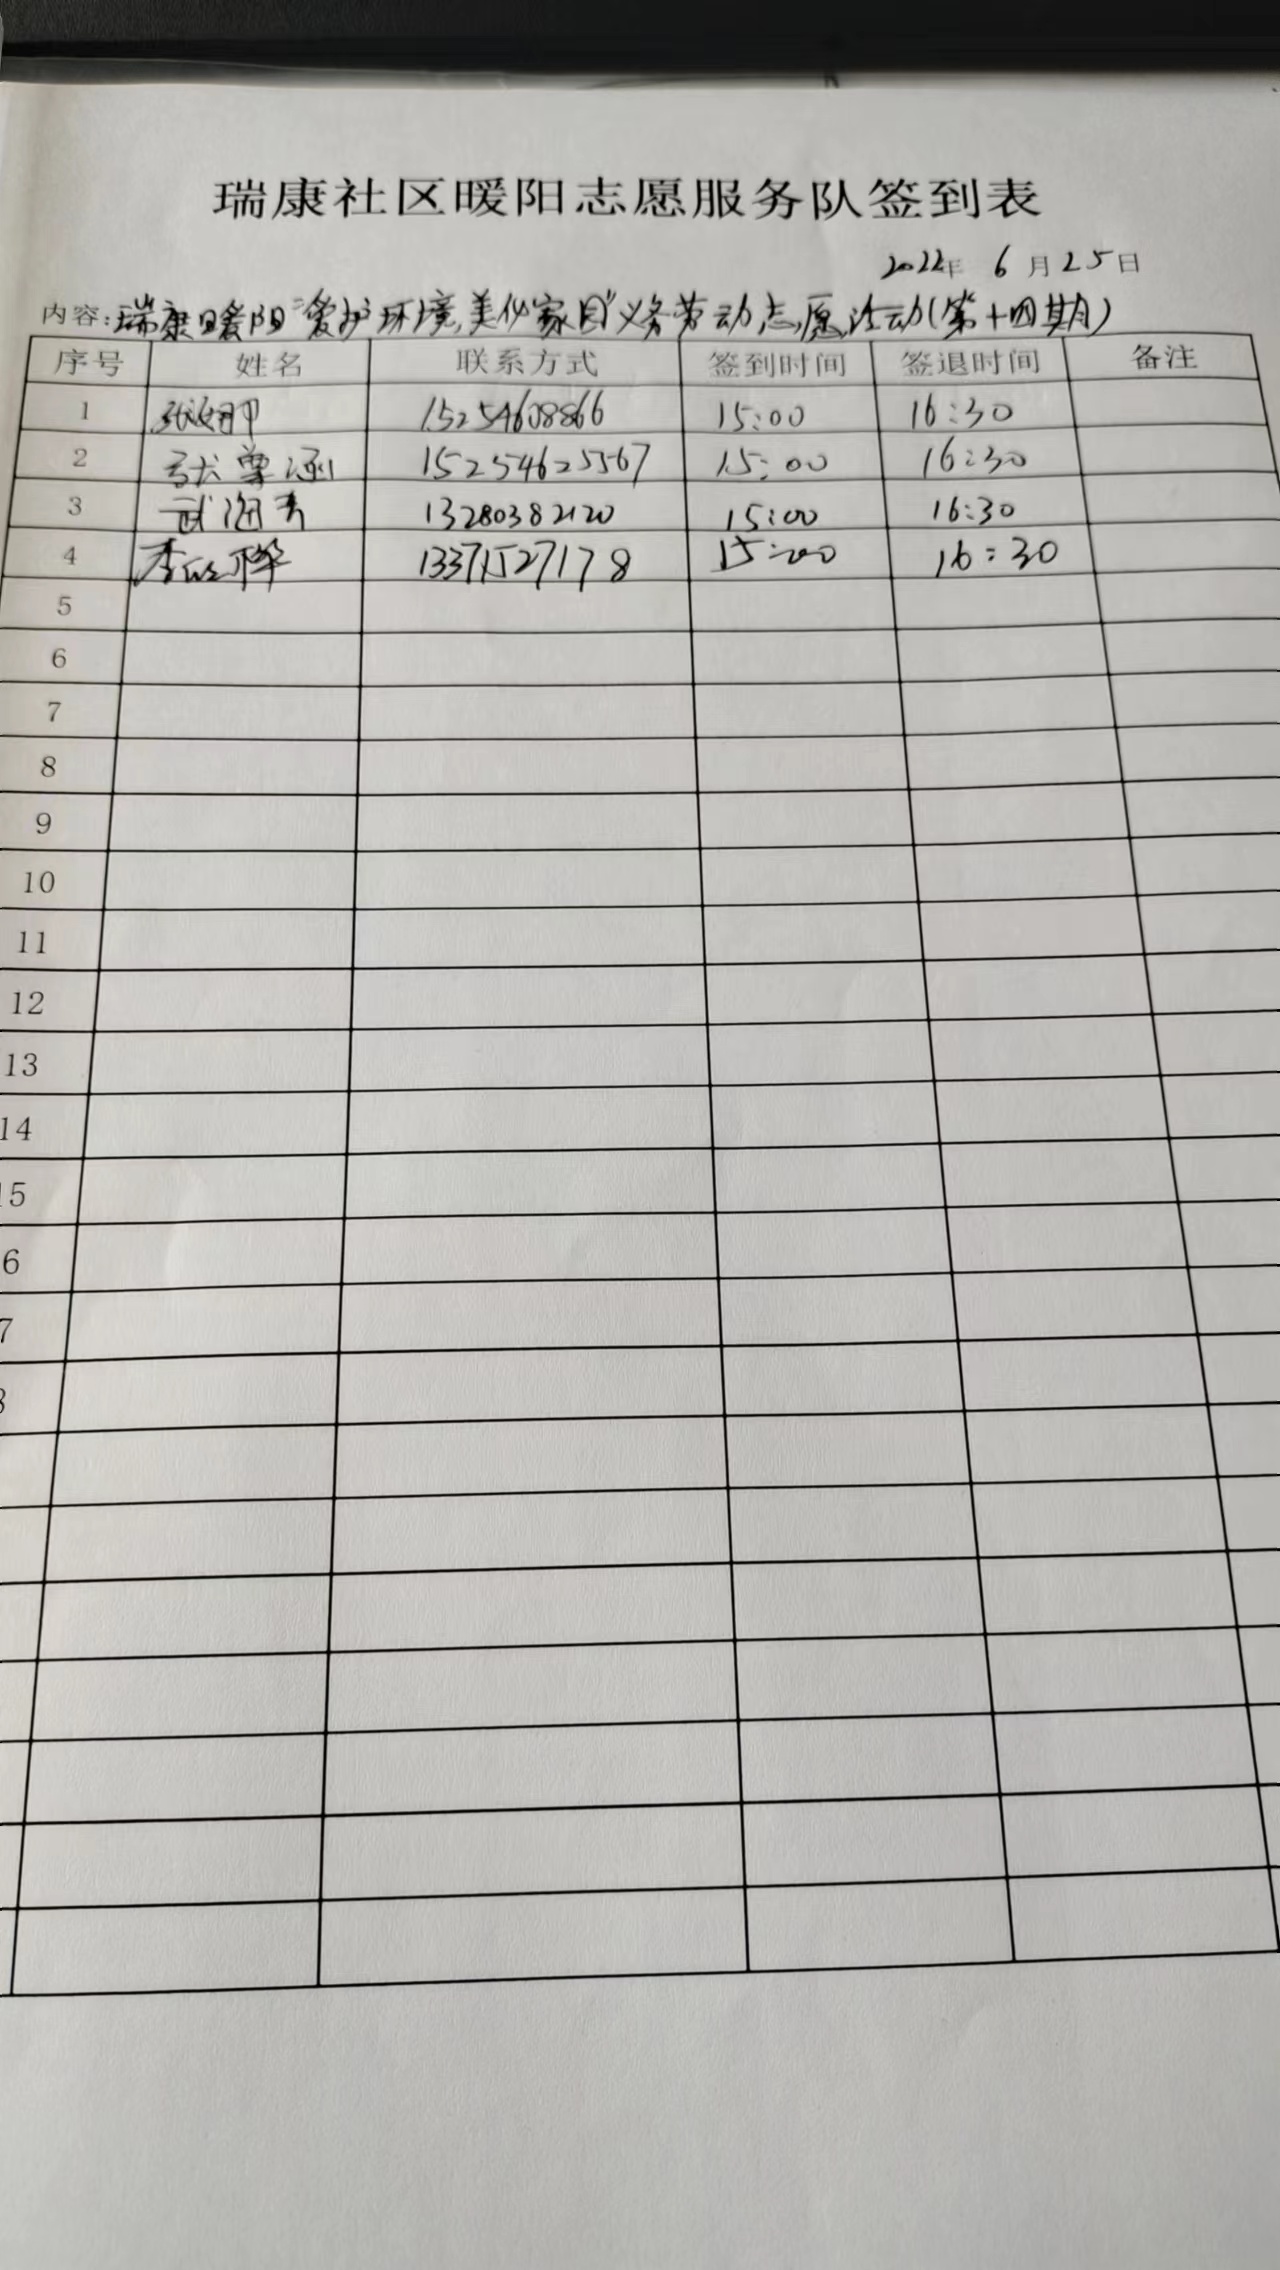 瑞康社区暖阳志愿服务队签到表
2022年 6月25日
内容:瑞康暖阳"爱护环境,美化家园"义务劳动志愿活动(第十四期)
序号 姓名 联系方式 签到时间 签退时间 备注
1 15254608866 15:00 16:30
2 张曼涵 15254625567 15:00 16:30
3 武海青 13280382120 15:00 16:30
4 李 13371527178 15:00 16:30
5
6
7
8
9
10
11
12
13
14
15
6
7